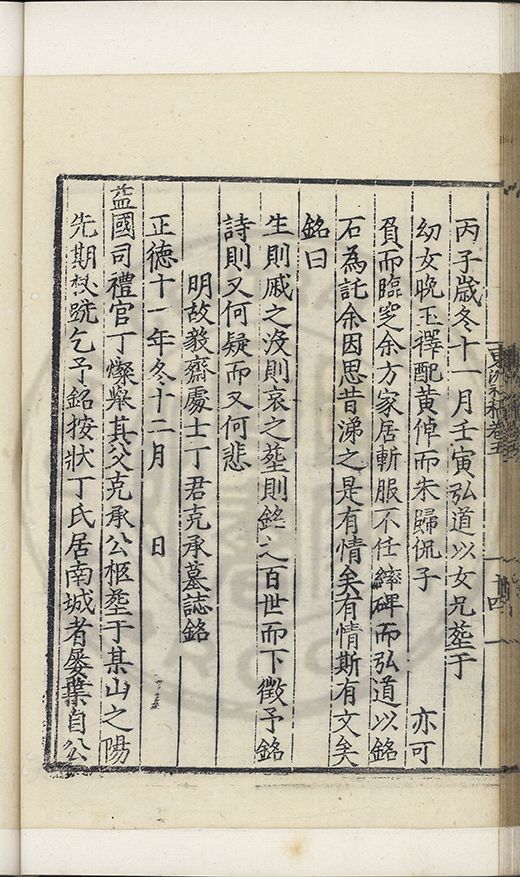 丙子歲冬十一月壬寅弘道以女兄塟于
幼女晚玉擇配黄倬而未歸侃子　亦可
負而臨穵余方家居斬服不任繂碑而弘道以銘
石為託余因思昔涕之是有情矣有情斯有文矣
銘曰
生則戚之沒則哀之塟則銘之百世而下徵予銘
詩則又何疑而又何悲
明故毅齋處士丁君克承墓誌銘
正德十一年冬十二月　日
益國司禮官丁燦舉其父克承公柩塟于某山之陽
先期杖跣乞予銘按狀丁氏居南城者屡葉自公
卷五
十四